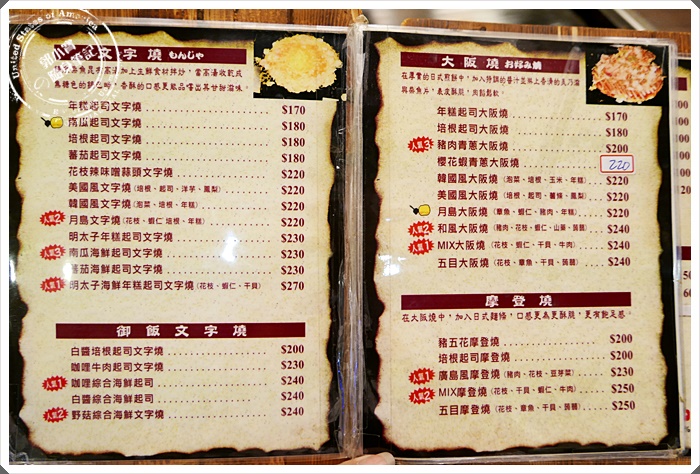 United States of America
文字燒 もんじゃ
焦糖色的
年糕起司文字燒 $170
南瓜起司文字燒 $180
培根起司文字燒 $180
蕃茄起司文字燒 $180
花枝辣味噌蒜頭文字燒 $220
美國風文字燒 (培根、起司、洋芋、鳳梨) $220
韓國風文字燒 (泡菜、培根、年糕) $220
人氣2 月島文字燒 (花枝、蝦仁、培根、年糕) $220
明太子年糕起司文字燒 $230
人氣2 南瓜海鮮起司文字燒 $230
蕃茄海鮮起司文字燒 $230
人氣1 明太子海鮮年糕起司文字燒 (花枝、蝦仁、干貝) $270
御飯文字燒
白醬培根起司文字燒 $200
咖哩牛肉起司文字燒 $230
人氣1 咖哩綜合海鮮起司 $240
白醬綜合海鮮起司 $240
人氣2 野菇綜合海鮮文字燒 $240
大阪燒 お好み燒
在厚實的日式煎餅中，加入特調的醬汁並淋上香滑的美乃滋
與柴魚片，表皮酥脆，內餡鬆軟。
年糕起司大阪燒 $170
培根起司大阪燒 $180
人氣2 豬肉青蔥大阪燒 $200
櫻花蝦青蔥大阪燒 220
韓國風大阪燒 (泡菜、培根、玉米、年糕) $220
美國風大阪燒 (培根、起司、薯條、鳳梨) $220
月島大阪燒 (章魚、蝦仁、豬肉、年糕) $220
人氣2 和風大阪燒 (豬肉、花枝、蝦仁、山藥、蒟蒻) $240
人氣1 MIX大阪燒 (花枝、蝦仁、干貝、牛肉) $240
五目大阪燒 (花枝、章魚、干貝、蒟蒻) $240
摩登燒
在大阪燒中，加入日式麵條，口感更為更酥脆，更有飽足感。
豬五花摩登燒 $200
培根起司摩登燒 $200
人氣1 廣島風摩登燒 (豬肉、花枝、豆芽菜) $230
人氣2 MIX摩登燒 (花枝、干貝、蝦仁、牛肉) $250
五目摩登燒 (花枝、章魚、干貝、蒟蒻) $250